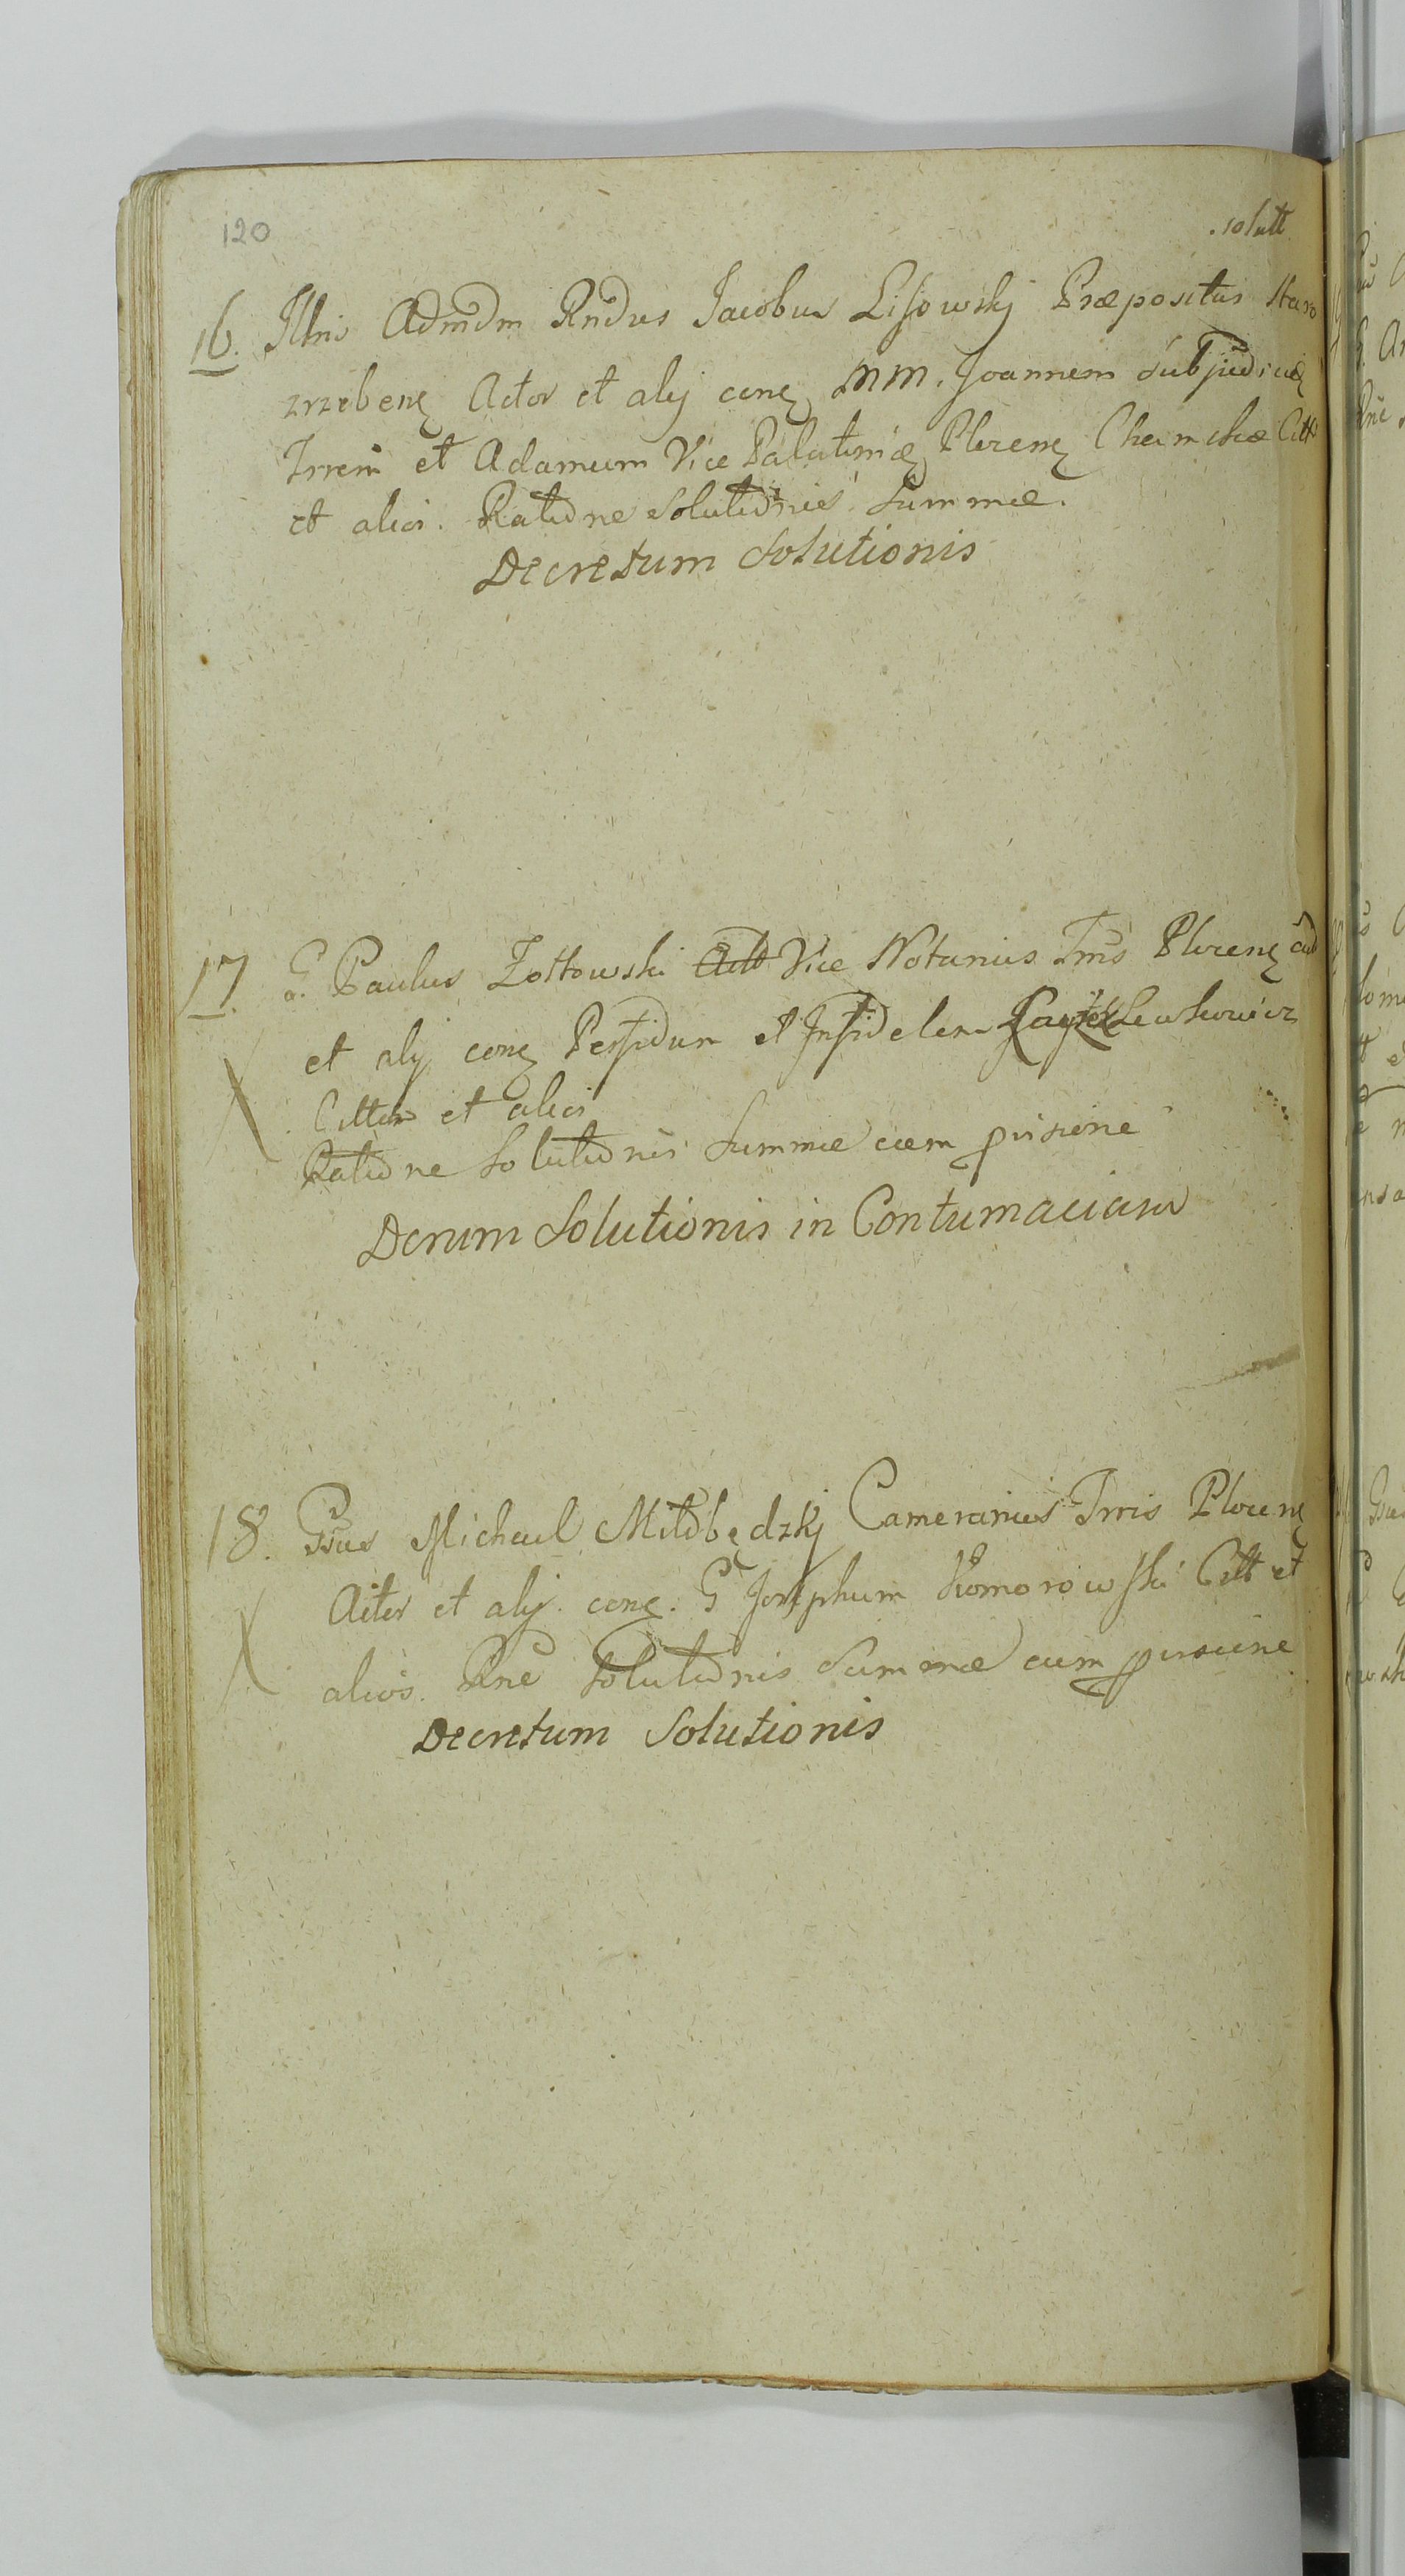 120
solutt
16. Illris Admdm Rndus Jacobus Lisowskj Præpositus Staro
zrzebens Actor et alij cons MM. Joannem Subjudicem
Trrem et Adamum Vice Palatinū Plocens Chamskie Citt
et alios. Ratione solutionis Summæ.
Decretum Solutionis
17 G. Paulus Zoltowski Vice Notarius Trris Plocens act
et alij cons Perfidum et Infidelem Lewkowicz
Cittm et alios
Ratione Solutionis Summæ cum pvisione
Decrum Solutionis in Contumaciam
18. Gsus Michael Miłobędzkj Camerarius Trris Plocens
Actor et alij cons. G Josephum Komorowski Citt et
alios. Rne Solutionis Summæ cum pvisione
Decretum Solutionis